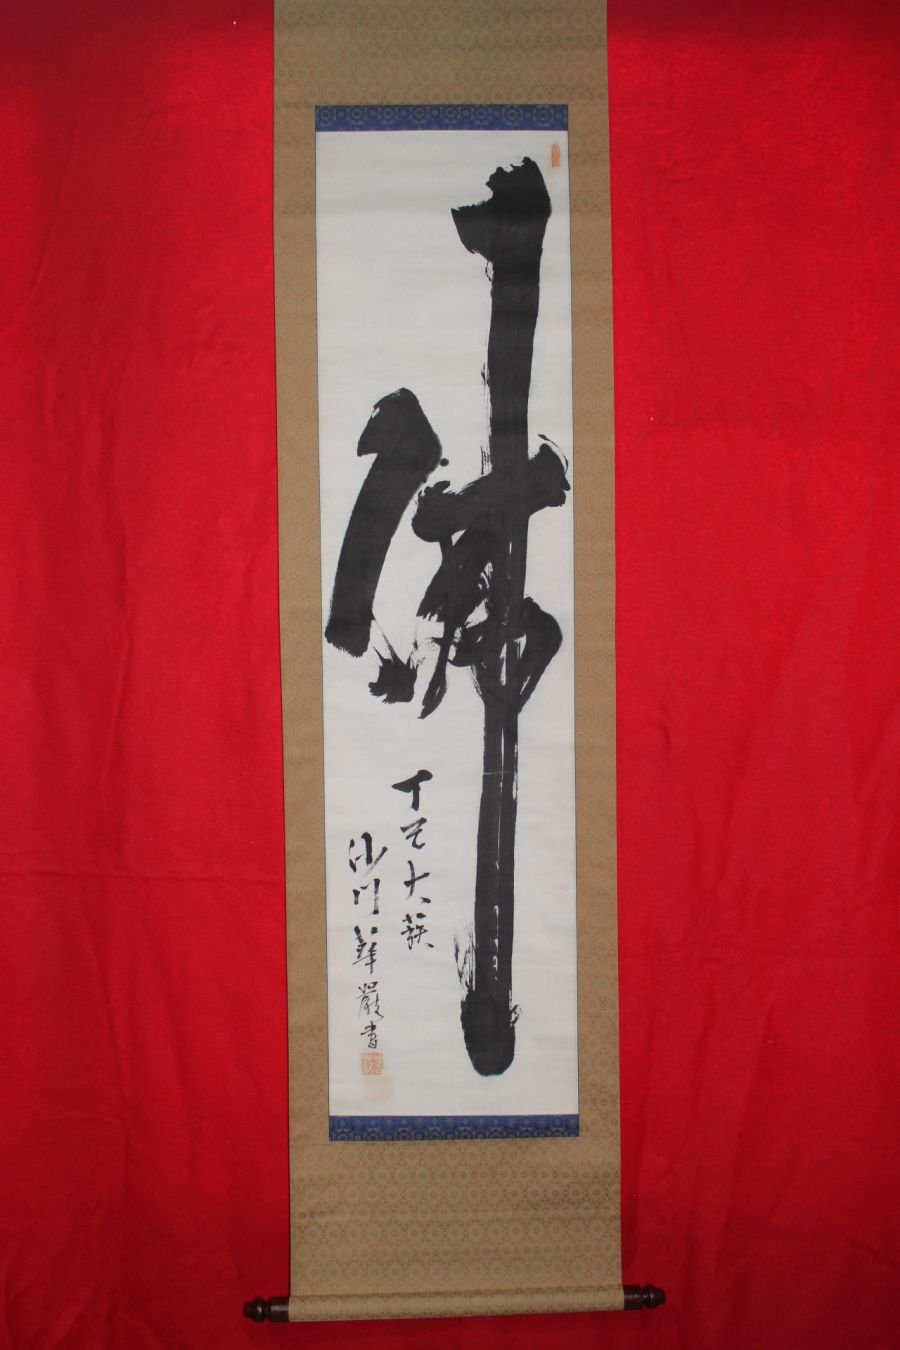 佛
丁巳大蔟
沙門華嚴書